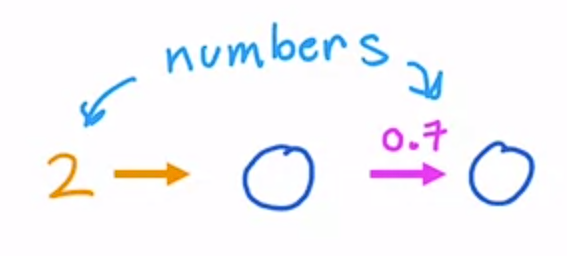 numbers
0.7
2